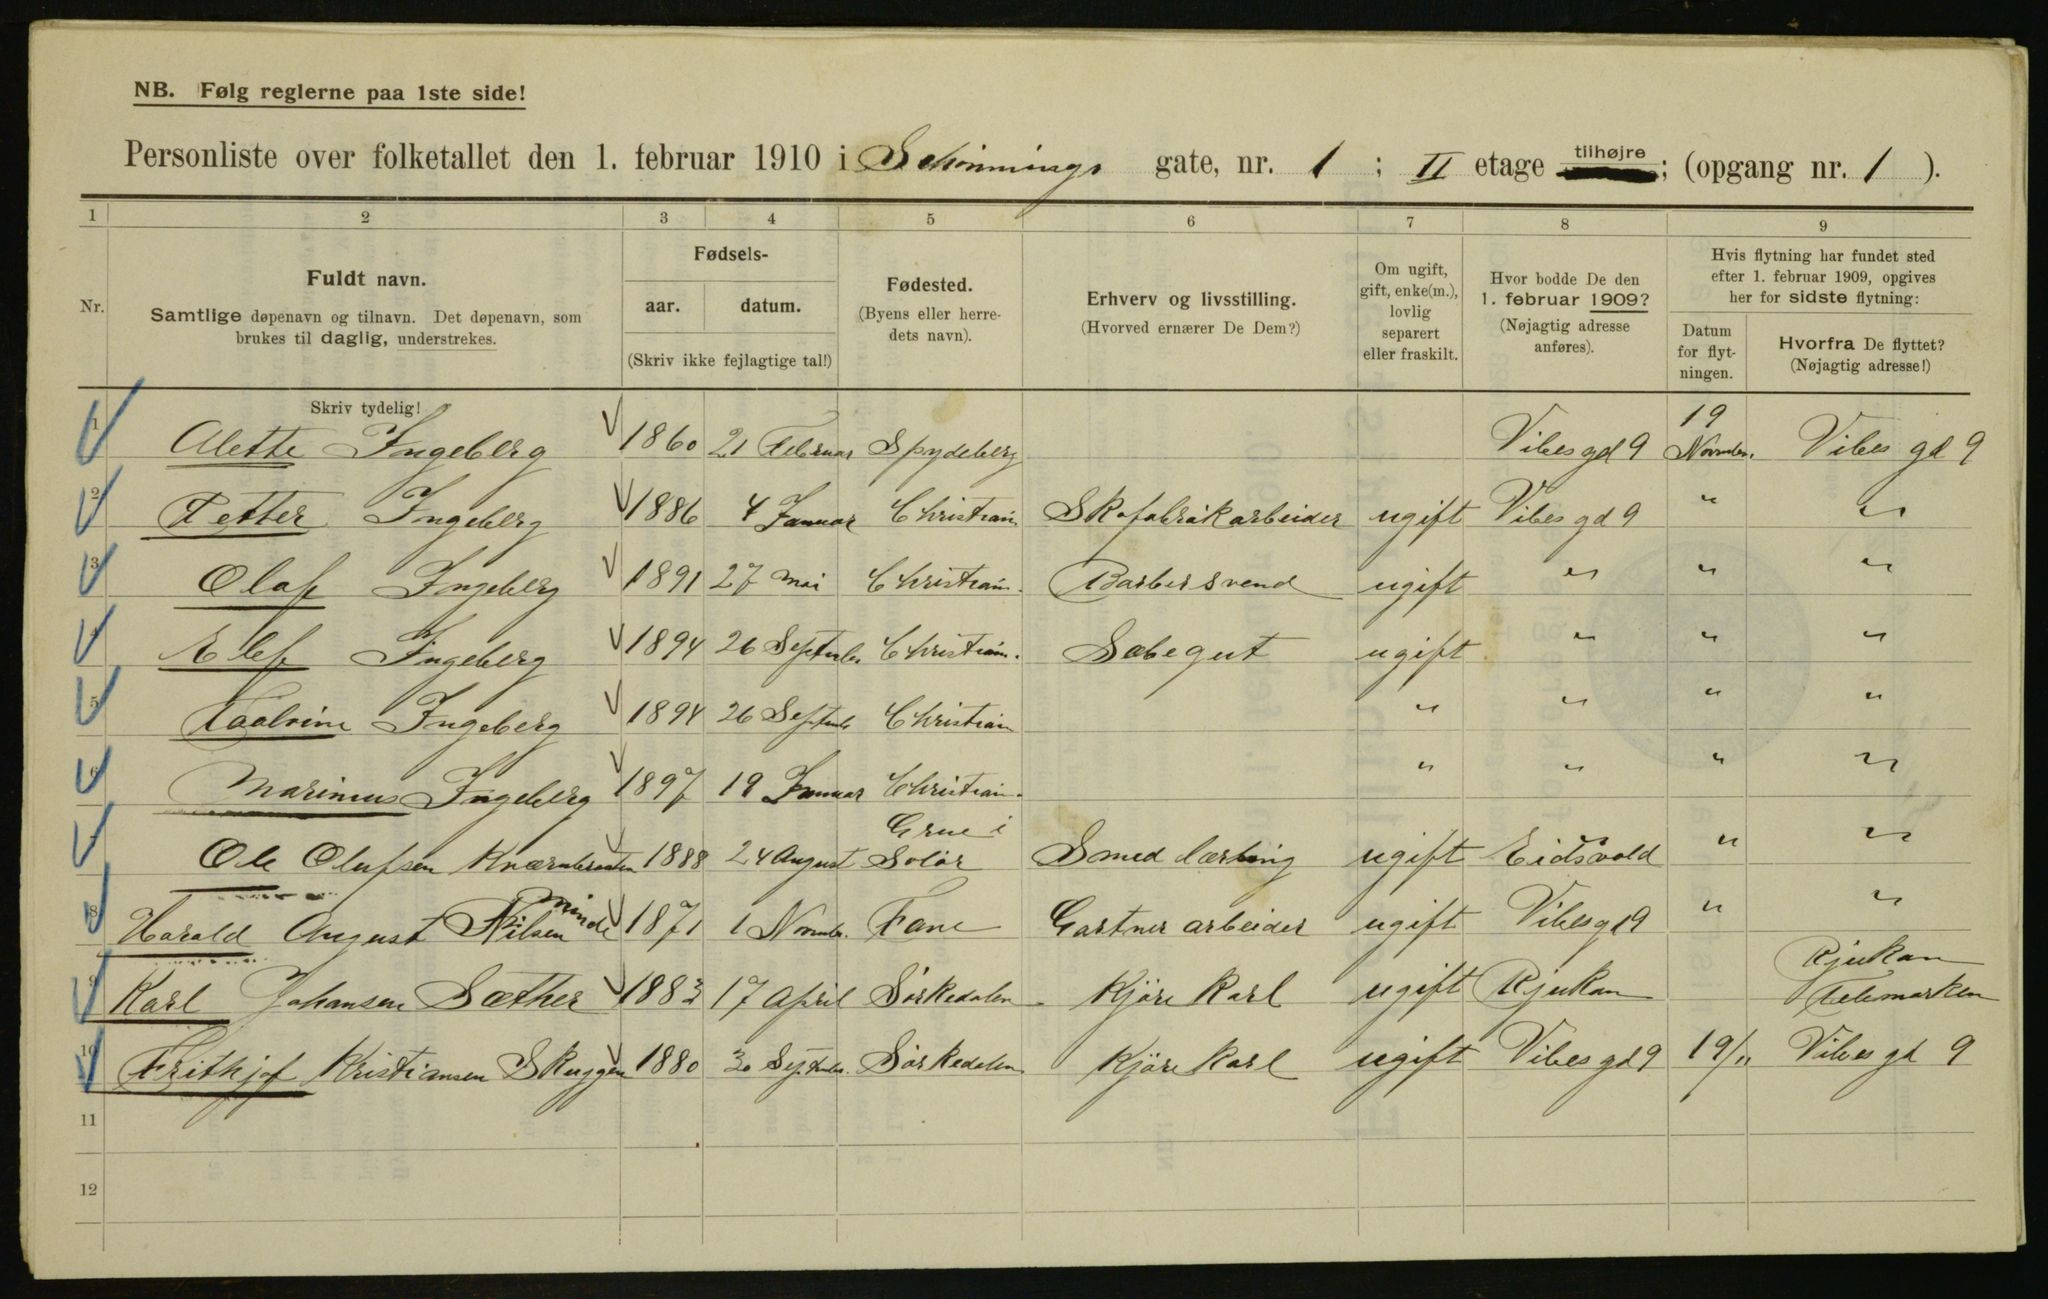 NB. Følg reglerne paa 1ste side!
Personliste over folketallet den 1. februar 1910 i Schønnings gate, nr. 1 ; II etage tilhøjre; (opgang nr. 1 ).
1 2 3 4 5 6 7 8 9
Nr.
Fuldt navn.
Samtlige døpenavn og tilnavn. Det døpenavn, som
brukes til daglig, understrekes.
Fødsels-
aar. datum.
(Skriv ikke fejlagtige tal!)
Fødested.
(Byens eller herre-
dets navn).
Erhverv og livsstilling.
(Hvorved ernærer De Dem?)
Om ugift,
gift, enke(m.),
lovlig
separert
eller fraskilt.
Hvor bodde De den
1. februar 1909?
(Nøjagtig adresse
anføres).
Hvis flytning har fundet sted
efter 1. februar 1909, opgives
her for sidste flytning:
Datum
for flyt-
ningen.
Hvorfra De flyttet?
(Nøjagtig adresse!)
Skriv tydelig!
1 Alette Ingeberg 1860 21 Februar Spydeberg Vibes gd 9 19 Novmber. Vibes gd 9
2 Petter Ingeberg 1886 4 Januar Christian. Skofabrikarbeider ugift Vibes gd 9 " "
3 Olaf Ingeberg 1891 27 mai Christian. Barbersvend ugift " " "
4 Elef Ingeberg 1894 26 Septmber Christian. Sobegut ugift " " "
5 Paalvine Ingeberg 1894 26 Septmbr Christian " " " "
6 Marinius Ingeberg 1897 19 Januar Christian. " " " "
7 Ole Olufsen Kværnbraaten 1888 24 August Grue i Solør Smed lærling ugift Eidsvold " "
8 Harald August Nilsen Minde 1871 1 Novmbr. Fane Gartner arbeider ugift Vibes gd 9 " "
9 Karl Johansen Sæther 1883 17 April Sørkedalen Kjøre Karl ugift Rjukan Rjukan Telemarken
10 Frithjof Kristiansen Skuggen 1880 30 Septmber. Sørkedalen Kjøre Karl ugift Vibes gd 9 19/11 Vibes gd 9
11
12